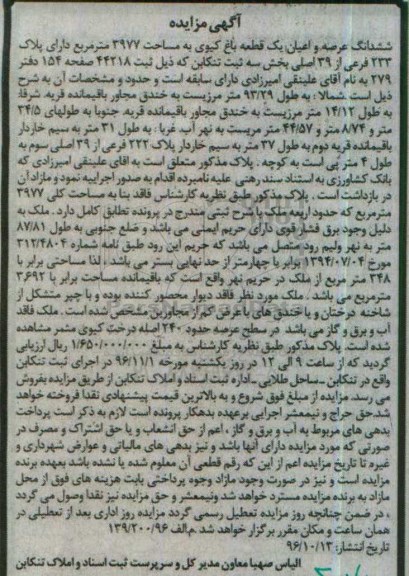 آگهی مزایده
ششدانگ عرصه و اعیان یک قطعه باغ کیوی به مساحت ۳۹۷۷ مترمربع دارای پلاک
۲۲۳ فرعی از ۳۹ اصلی بخش سه ثبت تنکابن که ذیل ثبت ۴۴۲۱۸ صفحه ۱۵۴ دفتر
۲۷۹ به نام آقای علینقی امیرزادی دارای سابقه است و حدود و مشخصات آن به شرح
ذیل است .شمالا : به طول ۹۳/۲۹ متر مرزیست به خندق مجاور باقیمانده قریه. شرقا:
به طول ۱۴/۱۲ متر مرزیست به خندق مجاور باقیمانده قریه. جنوبا به طولهای ۳۴/۵
متر و ۸/۷۴ متر و ۴۴/۵۷ متر مریست به نهر آب. غربا : به طول ۳۱ متر به سیم خاردار
باقیمانده قریه دوم به طول ۳۷ متر به سیم خاردار پلاک ۲۲۲ فرعی از ۳۹ اصلی سوم به
طول ۴ متر پی است به کوچه . پلاک مذکور متعلق است به آقای علینقی امیرزادی که
بانک کشاورزی به استناد سند رهنی علیه نامبرده اقدام به صدور اجراییه نمود و مازاد آن
در بازداشت است . پلاک مذکور طبق نظریه کارشناس فاقد بنا به مساحت کلی ۳۹۷۷
مترمربع که حدود اربعه ملک با شرح ثبتی مندرج در پرونده تطابق کامل دارد . ملک به
دلیل وجود برق فشار قوی دارای حریم ایمنی می باشد و ضلع جنوبی به طول ۸۷/۸۱
متر به نهر ولیم رود متصل می باشد که حریم این رود طبق نامه شماره ۳۱۲/۴۸۰۴
مورخ ۱۳۹۴/۰۷/۰۴ برابر با چهارمتر از حد نهایی بستر می باشد . لذا مساحتی برابر با
۳۴۸ متر مربع از ملک در حریم نهر واقع است که باقیمانده مساحت برابر با ۳.۶۹۲
مترمربع می باشد . ملک مورد نظر فاقد دیوار محصور کننده بوده و با چپر متشکل از
شاخه درختان و یا خندق های با عرض کم از مجاورین مشخص شده است . ملک فاقد
آب و برق و گاز می باشد در سطح عرصه حدود ۲۴۰ اصله درخت کیوی مثمر مشاهده
شده است. پلاک مذکور طبق نظریه کارشناس به مبلغ ۱/۶۵۰/۰۰۰/۰۰۰ ریال ارزیابی
گردید که از ساعت ۹ الی ۱۲ در روز یکشنبه مورخه ۹۶/۱۱/۱ در اجرای ثبت تنکابن
واقع در تنکابن -ساحل طلایی -اداره ثبت اسناد و املاک تنکابن از طریق مزایده بفروش
می رسد. مزایده از مبلغ فوق شروع و به بالاترین قیمت پیشنهادی نقدا فروخته خواهد
شد.حق حراج و نیمعشر اجرایی برعهده بدهکار پرونده است لازم به ذکر است پرداخت
بدهی های مربوط به آب و برق و گاز ، اعم از حق انشعاب و یا حق اشتراک و مصرف در
صورتی که مورد مزایده دارای آنها باشد و نیز بدهی های مالیاتی و عوارض شهرداری و
غیره تا تاریخ مزایده اعم از این که رقم قطعی آن معلوم شده یا نشده باشد بعهده برنده
مزایده است و نیز در صورت وجود مازاد وجوه پرداختی بابت هزینه های فوق از محل
مازاد به برنده مزایده مسترد خواهد شد ونیمعشر و حق مزایده نیز نقدا وصول می گردد
، در ضمن چنانچه روز مزایده تعطیل رسمی گردد مزایده روز اداری بعد از تعطیلی در
همان ساعت و مکان مقرر برگزار خواهد شد .م.الف ۱۳۹/۲۰۰/۹۶
تاریخ انتشار: ۹۶/۱۰/۱۳
الیاس صهبا معاون مدیر کل و سرپرست ثبت اسناد و املاک تنکابن